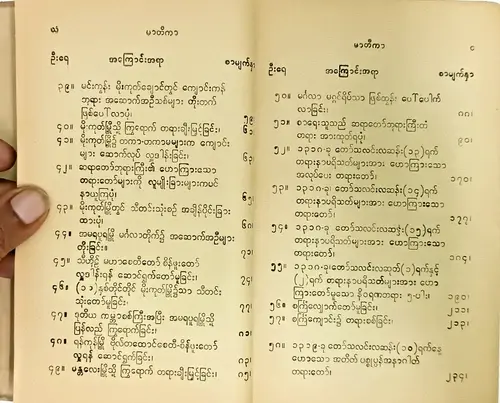 ဃ
မာတိကာ
ဦးရေ အကြောင်းအရာ စာမျက်နှာ
၃၉။ မင်းကွန်း မိုးကုတ်ချောင်တွင် ကျောင်းကန်
ဘုရား အဆောက်အဦသစ်များ တိုးတက်
ဖြစ်ပေါ်လာပုံ။ ၅၉
၄၀။ မိုးကုတ်မြို့သို့ ကြွရောက် တရားချီးမြှင့်ခြင်း၊ ၆၁
၄၁။ မိုးကုတ်မြို့၌ ဒကာ-ဒကာမများက ကျောင်း
များ ဆောက်လုပ် လှူဒါန်းခြင်း၊ ၆၃
၄၂။ ဆရာတော်ဘုရားကြီး၏ ဟောကြားသော
တရားတော်များကို လူမျိုးခြားများကပင်
နာယူကြပုံ၊ ၆၅
၄၃။ မိုးကုတ်မြို့တွင် သီတင်းသုံးစဉ် အချိန်ပိုင်းခြား
ထားပုံ၊ ၆၈
၄၄။ အမရပူရမြို့ မင်္ဂလာတိုက်၌ အဆောက်အဦများ
တိုးခြင်း၊ ၇၁
၄၅။ သီဟိုဠ် မဟာစေတီတော် စိန်ဖူးတော်
လှူဒါန်းရန် ဆောင်ရွက်တော်မူခြင်း၊ ၇၄
၄၆။ (၁၃)နှစ်တိုင်တိုင် မိုးကုတ်မြို့၌သာ သီတင်း
သုံးတော်မူခြင်း၊ ၇၇
၄၇။ ဒုတိယ ကမ္ဘာစစ်ကြီးအပြီး အမရပူရမြို့သို့
ပြန်လည် ကြွရောက်ခြင်း၊ ၈၁
၄၈။ ရန်ကုန်မြို့ ဗိုလ်တထောင်စေတီ-စိန်ဖူးတော်
လှူရန် ဆောင်ရွက်ခြင်း၊ ၈၃
၄၉။ မန္တလေးမြို့သို့ ကြွရောက် တရားချီးမြှင့်ခြင်း၊ ၈၅
မာတိကာ
င
ဦးရေ အကြောင်းအရာ စာမျက်နှာ
၅၀။ မင်္ဂလာ မဂ္ဂင်ရိပ်သာ ဖြစ်ထွန်း ပေါ်ပေါက်
လာခြင်း၊ ၈၈
၅၁။ စာရေးသူသည် ဆရာတော်ဘုရားကြီးထံ
တရား အားထုတ်ရပုံ၊ ၉၀
၅၂။ ၁၃၁၈-ခု တော်သလင်းလဆန်း(၁၃)ရက်
တရားနာပရိသတ်များအား ဟောကြားသော
အလုပ်ပေး တရားတော်၊ ၁၇၀
၅၃။ ၁၃၁၈-ခု တော်သလင်းလဆန်း(၁၄)ရက်
တရားနာပရိသတ်များအား ဟောကြားသော
တရားတော်၊ ၁၇၇
၅၄။ ၁၃၁၈-ခု တော်သလင်းလဆန်း(၁၅)ရက်
တရားနာပရိသတ်များအား ဟောကြားသော
တရားတော်၊ ၁၈၄
၅၅။ ၁၃၁၈-ခုတော်သလင်းလဆုတ်(၁)ရက်နှင့်
(၂)ရက် တရားနာပရိသတ်များအား ဟော
ကြားတော်မူသော နိဝရဏတရား ၅-ပါး၊ ၁၉၁
၅၆။ စင်္ကြံလျှောက်တော်မူခြင်း၊ ၂၁၁
၅၇။ စင်္ကြံကျောင်း၌ တရားစစ်ခြင်း၊ ၂၁၃
၅၈။ ၁၃၁၉-ခု တော်သလင်းလဆန်း(၁၀)ရက်နေ့
ဟောသော အတိတ် ပစ္စုပ္ပန်အနာဂါတ်
တရားတော်၊ ၂၃၄